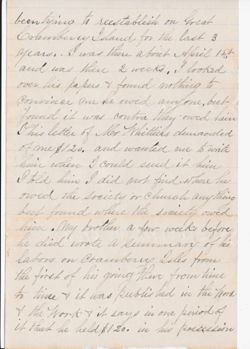 been trying to reestablish on Great
Cranberry Island for the last 3
years. I was there about April 1st
and was there 2 weeks, I looked
over his papers & found nothing to
convince me he owed anyone, but
found it was contra they owed him
this letter of Mrs demanded
of me $120. and wanted me to write
him when I could send it him
I told him I did not find where he
owed the Society or Church anything
but found where the society owed
him. My brother a few weeks before
he died wrote a summary of his
labors on Cranberry Isles from
the first of his going there from time
to time & it was published in the Word
& the Work & it says in one period of
it that he held $120. in his possession